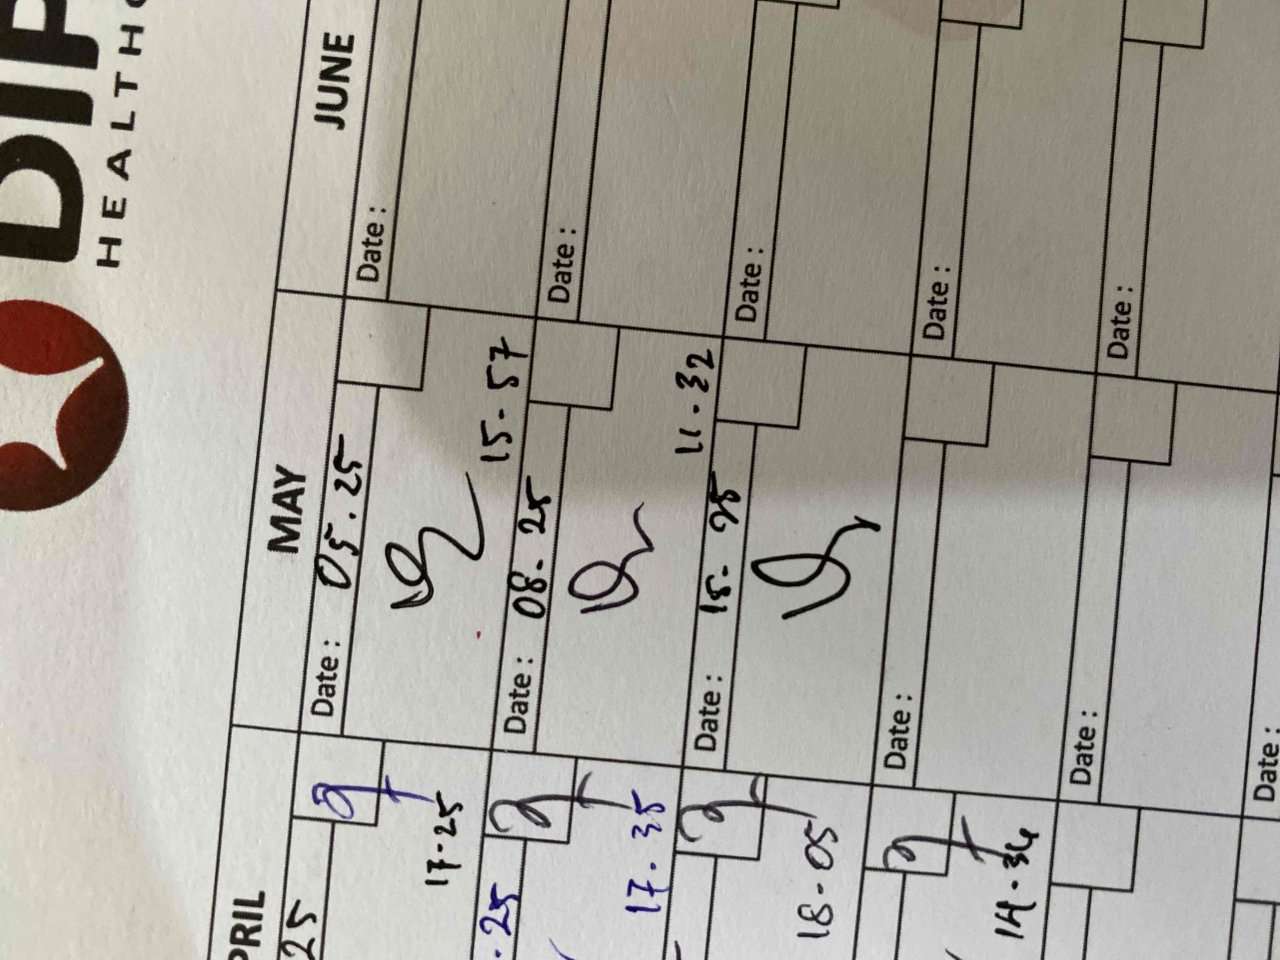 DIP
HEALTHC
PRIL MAY JUNE
25
Date : 05.25
Date :
17.25
15.57
.25
Date : 08.25
Date :
17.35
11.32
Date : 15.25
Date :
18.05
Date :
Date :
14.34
Date :
Date :
Date :